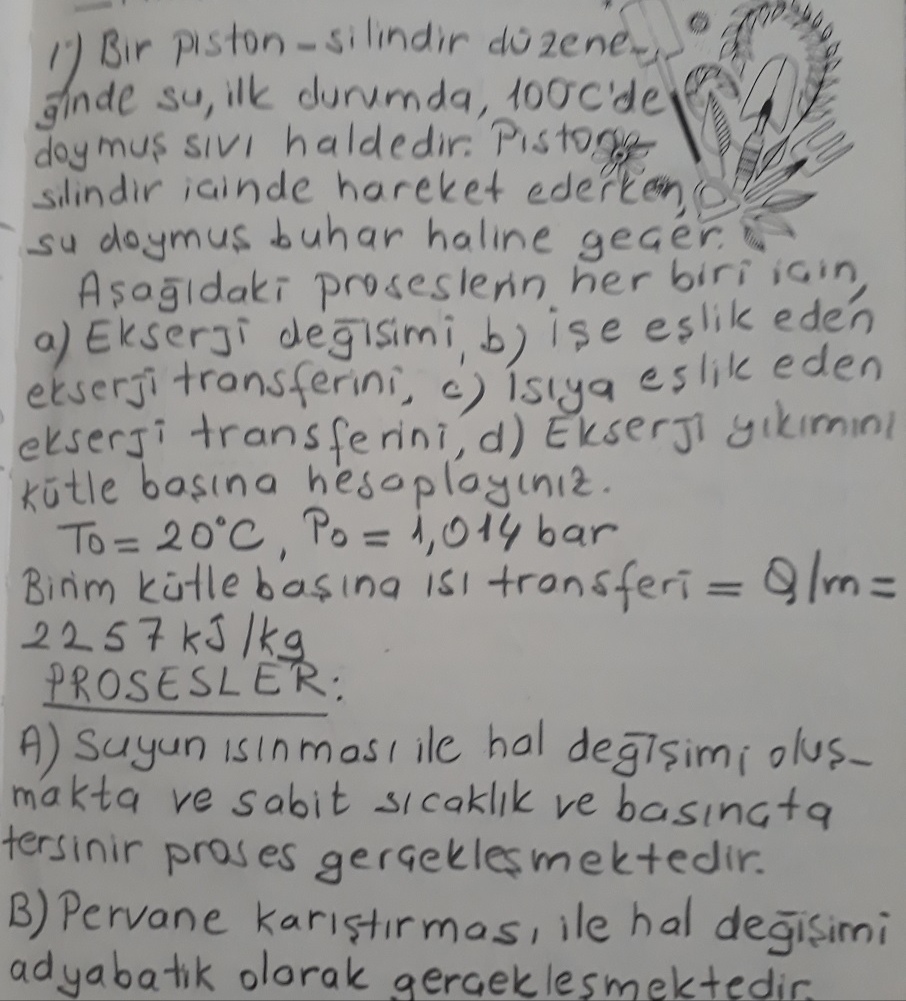 1) Bir piston-silindir düzene-
ğinde su, ilk durumda, 100°C'de
doymuş sıvı haldedir. Piston-
silindir içinde hareket ederken,
su doymuş buhar haline geçer.
Aşağıdaki proseslerin her biri için,
a) Ekserji değişimi, b) işe eşlik eden
ekserji transferini, c) Isıya eşlik eden
ekserji transferini, d) Ekserji yıkımını
kütle başına hesaplayınız.
T0 = 20°C, P0 = 1,014 bar
Birim kütle başına ısı transferi = Q/m =
2257 kJ/kg
PROSESLER:
A) Suyun ısınması ile hal değişimi oluş-
makta ve sabit sıcaklık ve basınçta
tersinir proses gerçekleşmektedir.
B) Pervane karıştırması ile hal değişimi
adyabatik olarak gerçekleşmektedir.